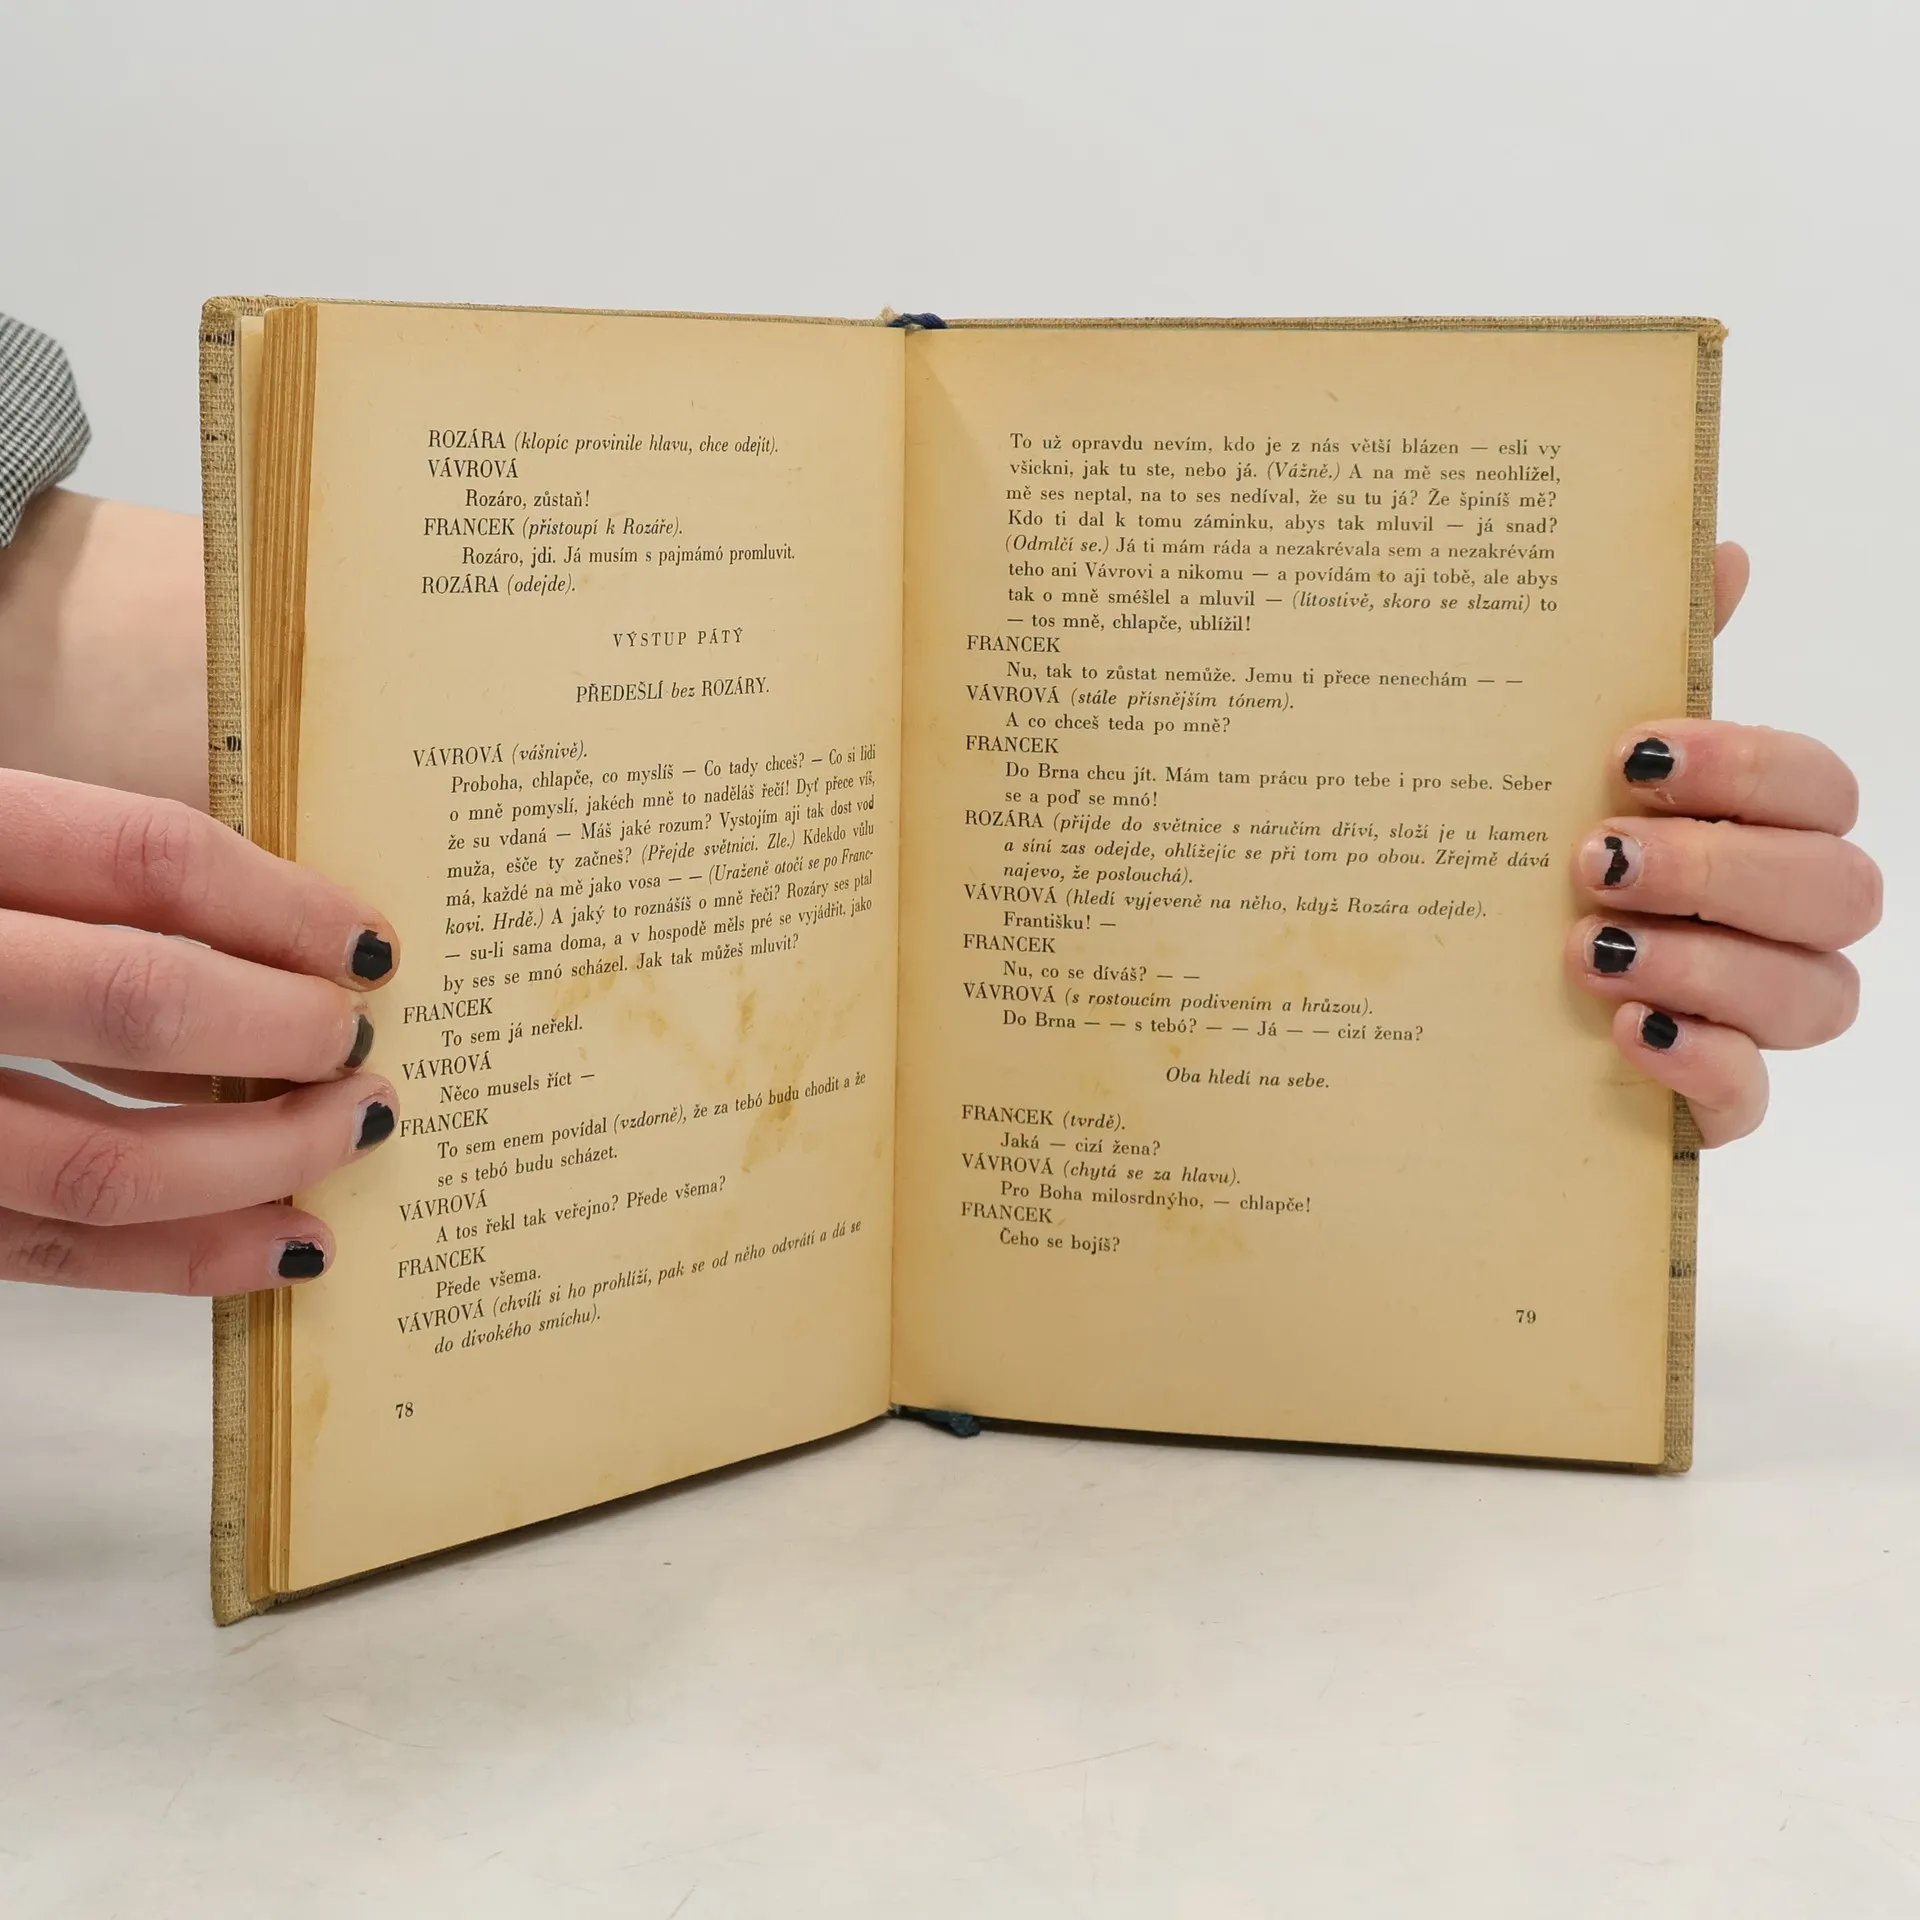 ROZÁRA (klopíc provinile hlavu, chce odejít).
VÁVROVÁ
Rozáro, zůstaň!
FRANCEK (přistoupí k Rozáře).
Rozáro, jdi. Já musím s pajmámó promluvit.
ROZÁRA (odejde).
VÝSTUP PÁTÝ
PŘEDEŠLÍ bez ROZÁRY.
VÁVROVÁ (vášnivě).
Proboha, chlapče, co myslíš — Co tady chceš? — Co si lidi
o mně pomyslí, jakéch mně to naděláš řečí! Dyť přece víš,
že su vdaná — Máš jaké rozum? Vystojím aji tak dost vod
muža, ešče ty začneš? (Přejde světnici. Zle.) Kdekdo vůlu
má, každé na mě jako vosa — — (Uraženě otočí se po Franc-
kovi. Hrdě.) A jaký to roznášíš o mně řeči? Rozáry ses ptal
— su-li sama doma, a v hospodě měls pré se vyjádřit, jako
by ses se mnó scházel. Jak tak můžeš mluvit?
FRANCEK
To sem já neřekl.
VÁVROVÁ
Něco musels říct —
FRANCEK
To sem enem povídal (vzdorně), že za tebó budu chodit a že
se s tebó budu scházet.
VÁVROVÁ
A tos řekl tak veřejno? Přede všema?
FRANCEK
Přede všema.
VÁVROVÁ (chvíli si ho prohlíží, pak se od něho odvrátí a dá se
do divokého smíchu).
78
To už opravdu nevím, kdo je z nás větší blázen — esli vy
všickni, jak tu ste, nebo já. (Vážně.) A na mě ses neohlížel,
mě ses neptal, na to ses nedíval, že su tu já? Že špiníš mě?
Kdo ti dal k tomu záminku, abys tak mluvil — já snad?
(Odmlčí se.) Já ti mám ráda a nezakrévala sem a nezakrévám
teho ani Vávrovi a nikomu — a povídám to aji tobě, ale abys
tak o mně sméšlel a mluvil — (lítostivě, skoro se slzami) to
— tos mně, chlapče, ublížil!
FRANCEK
Nu, tak to zůstat nemůže. Jemu ti přece nenechám — —
VÁVROVÁ (stále přísnějším tónem).
A co chceš teda po mně?
FRANCEK
Do Brna chcu jít. Mám tam prácu pro tebe i pro sebe. Seber
se a poď se mnó!
ROZÁRA (přijde do světnice s náručím dříví, složí je u kamen
a síní zas odejde, ohlížejíc se při tom po obou. Zřejmě dává
najevo, že poslouchá).
VÁVROVÁ (hledí vyjeveně na něho, když Rozára odejde).
Františku! —
FRANCEK
Nu, co se díváš? — —
VÁVROVÁ (s rostoucím podivením a hrůzou).
Do Brna — — s tebó? — — Já — — cizí žena?
Oba hledí na sebe.
FRANCEK (tvrdě).
Jaká — cizí žena?
VÁVROVÁ (chytá se za hlavu).
Pro Boha milosrdnýho, — chlapče!
FRANCEK
Čeho se bojíš?
79